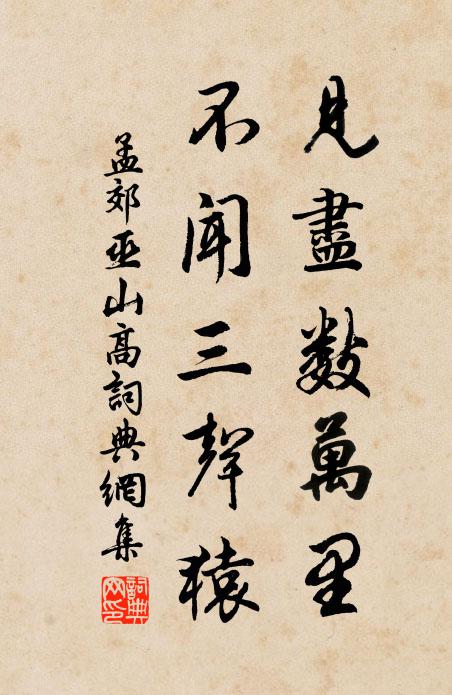 見盡數萬里
不聞三聲猿
孟郊巫山高詞典網集
詞典
網印